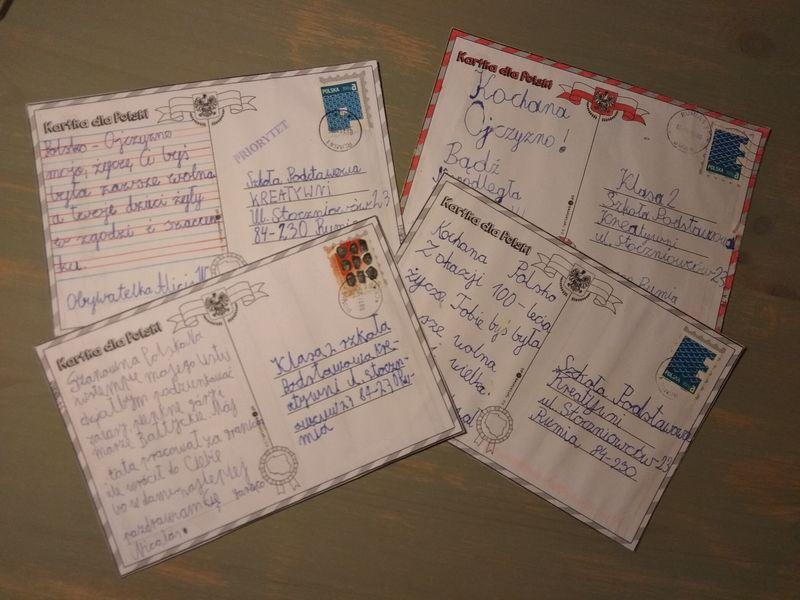 Kartka dla Polski
Polsko - Ojczyzno
moja, życzę Ci byś
była zawsze wolna
a twoje dzieci żyły
w zgodzi i szacun
ku.
Obywatelka Alicja
POLSKA
PRIORYTET
Szkoła Podstawowa
KREATYWNI
Ul. Stoczniowców 23
84-230 Rumia
Kartka dla Polski
Kochana
Ojczyzno!
Bądź
Klasa 2
Szkoła Podstawowa
Kreatywni
ul. Stoczniowców 23
Rumia
Kartka dla Polski
Szanowna Polsko Na
wstempie mojego listu
zaraz piękne góry
morze Bałtyckie Mój
tata pracował za granicą
ale wrócił do Ciebie
bo w domu najlepiej
pozdrawiam Cię gorąco
Klasa 2 szkoła
Podstawowa Kre-
atywni ul. Stoczn-
iowców 23 84-230 Ru-
mia
Kartka dla Polski
Kochana Polsko
Z okazji 100-lecia
życzę Tobie byś była
wolna
i wielka.
Szkoła Podstawowa
Kreatywni
ul. Stoczniowców-23
Rumia 84-230